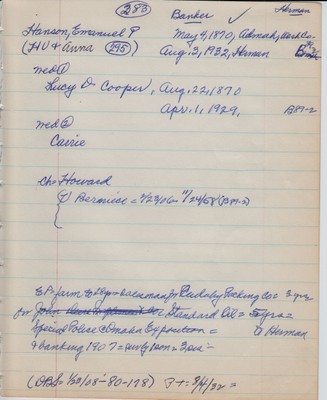 283
Banker ✓ Herman
Hanson, Emanuel P May 4, 1870, Admah, Wash Co.
(HV & Anna 295) Aug. 3, 1932, Herman
med ①
Lucy D. Cooper, Aug. 22, 1870
Apr. 1, 1929, B89-2
med ②
Carrie
ch= Howard
① Bernice = 7/23/06 = 11/24/58 (B
E.P. farm to 28 yrs = salesman for Cudahy Packing Co = 3 yrs
for John Co = Standard Oil = 5 yrs =
Special Police @ Omaha Exposition = @ Herman
& banking 1907 =
(OBS= 1/23/08 = 80-178) P+= 3/4/32 =